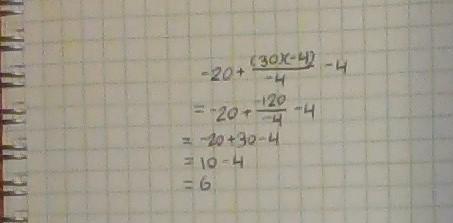 -20 + (30)(-4)/-4 - 4
= -20 + -120/-4 - 4
= -20 + 30 - 4
= 10 - 4
= 6